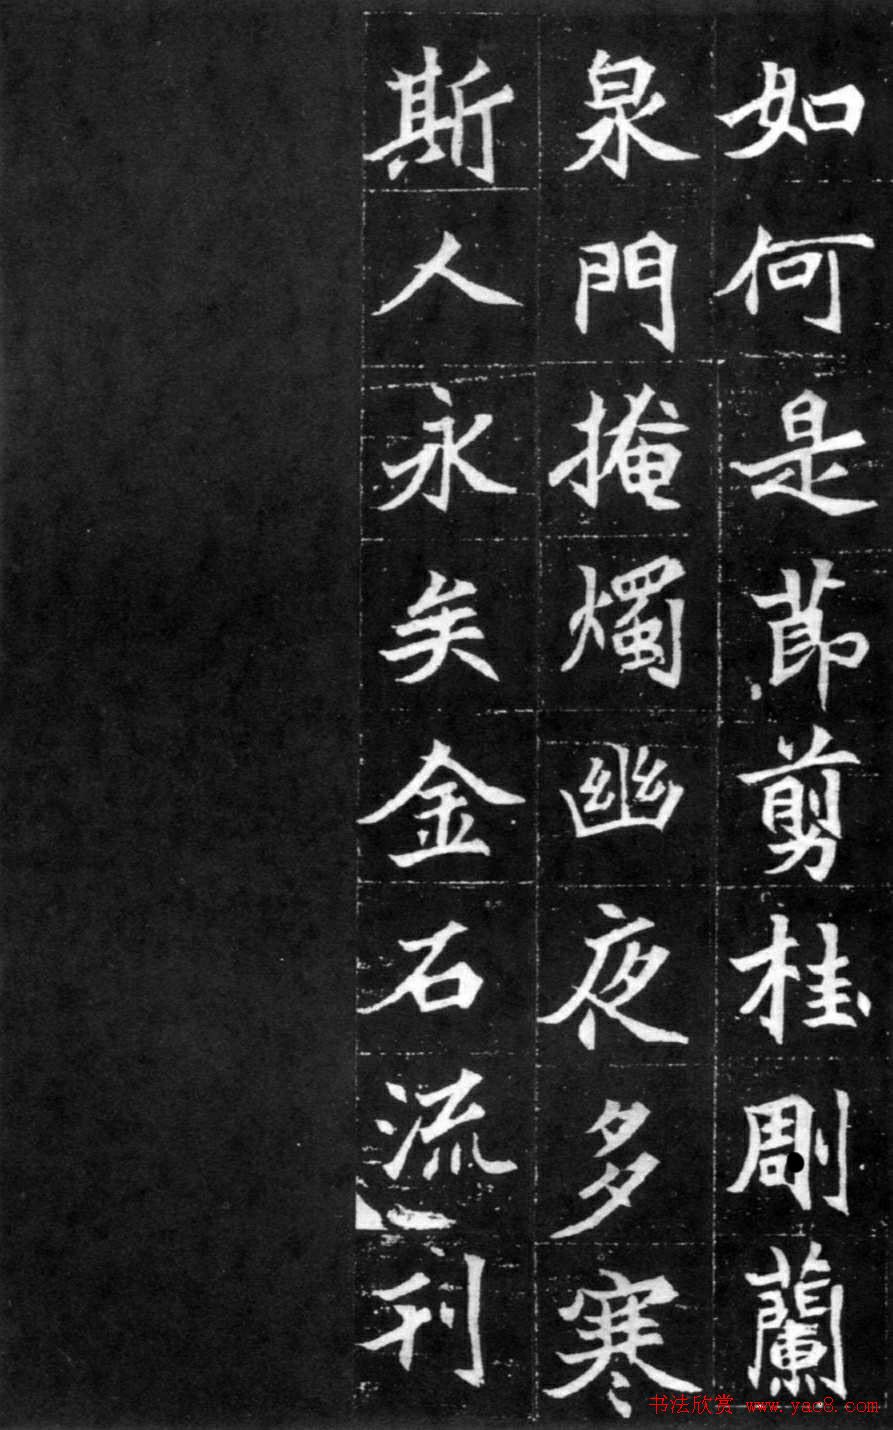 如何是莭剪桂剮蘭
泉門掩燭幽夜多寒
斯人永矣金石流刊
书法欣赏 www.yac8.com